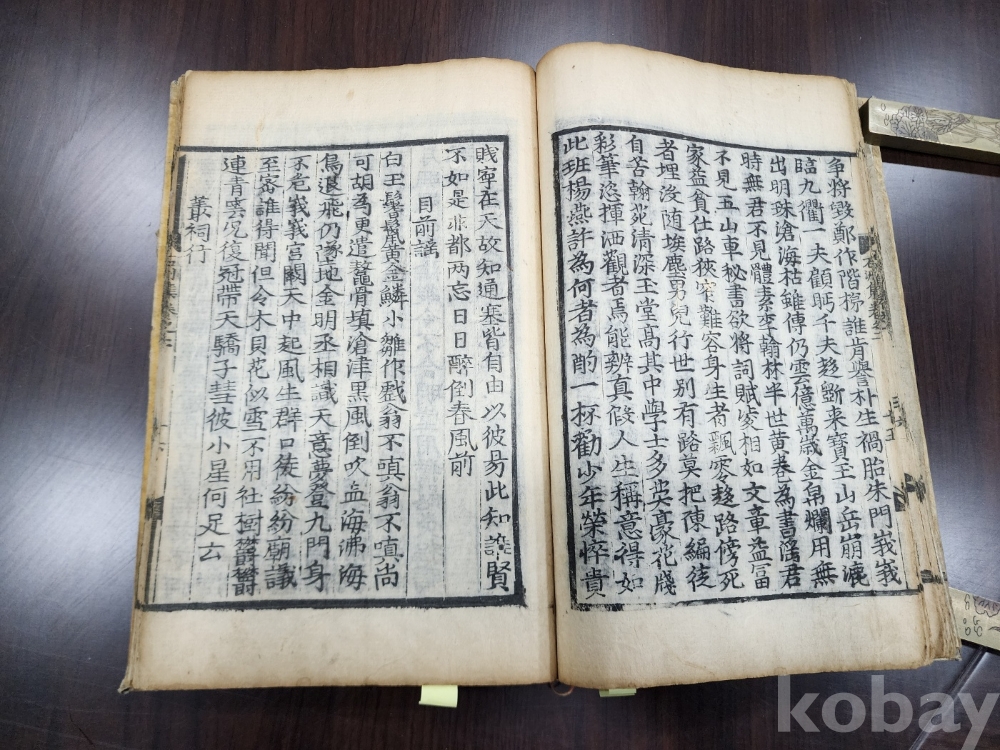 争將毀鄭作階榜誰肯譽朴生禍胎朱門峩峩
臨九衢一夫顧眄千夫趍斵来寶玉山岳崩漉
出明珠滄海枯雖傳仍雲億萬歲金帛爛用無
時無君不見體素李翰林半世黃卷為書滛君
不見五山車秘書欲將詞賦夌相如文章益富
家益貧仕路狹窄難容身生者飄零趍路傍死
者埋没随埃塵男兒行世別有路莫把陳編徒
自苦翰苑清深玉堂高其中學士多英豪花牋
彩筆恣揮洒觀者焉能辨真假人生稱意得如
此班楊燕許為何者為酌一杯勸少年榮悴貴
賤寧在天故知通塞皆自由以彼易此知誰賢
不如是非都两忘日日醉倒春風前
目前謠
白玉鬐鬣黃金鱗小雛作戱翁不嗔翁不嗔尚
可胡為更遣鼇骨填滄津黑風倒吹血海沸海
鳥退飛仍墜地金明丞相識天意夢登九門身
不危峩峩宮闕天中起風生群口徒紛紛廟議
至密誰得聞但令木貝花似雪不用社樹欝欝
連青雲况復冠帶天驕子彗彼小星何足云
叢祠行
kobay